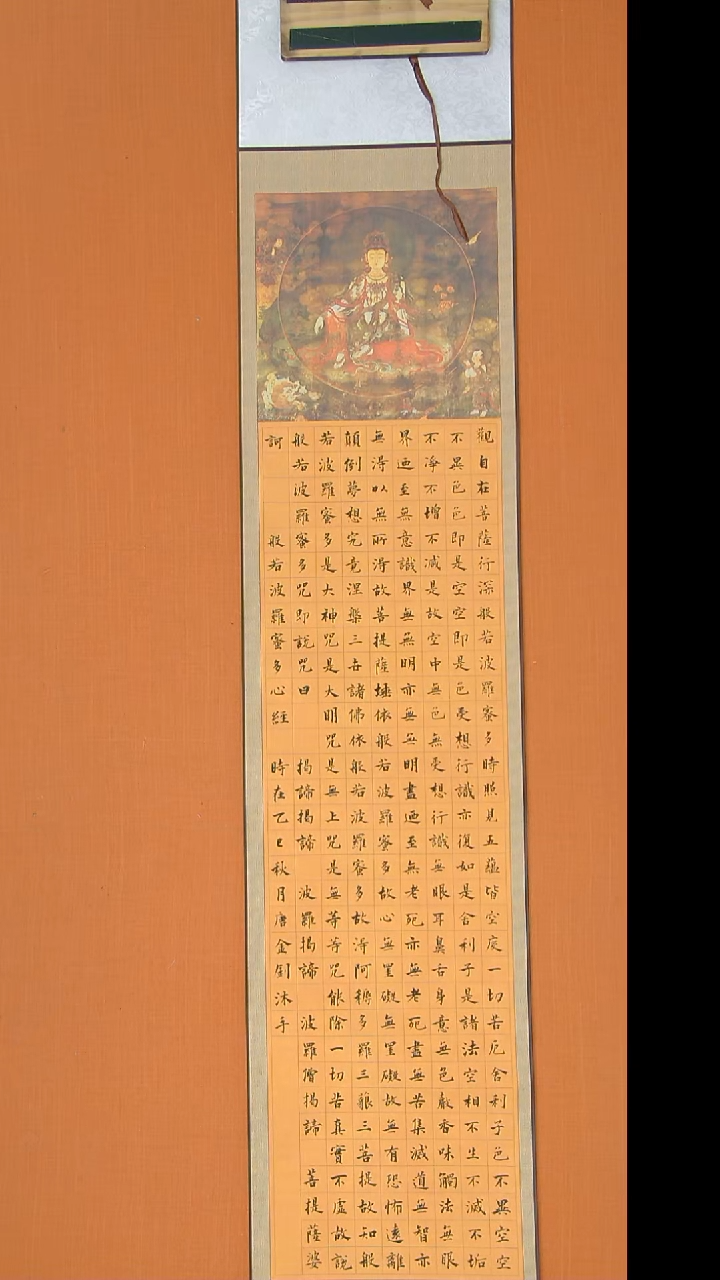 觀自在菩薩行深般若波羅蜜多時照見五蘊皆空度一切苦厄舍利子色不異空空
不異色色即是空空即是色受想行識亦復如是舍利子是諸法空相不生不滅不垢
不淨不增不減是故空中無色無受想行識無眼耳鼻舌身意無色聲香味觸法無眼
界迺至無意識界無無明亦無無明盡迺至無老死亦無老死盡無苦集滅道無智亦
無得以無所得故菩提薩埵依般若波羅蜜多故心無罣礙無罣礙故無有恐怖遠離
顛倒夢想究竟涅槃三世諸佛依般若波羅蜜多故得阿耨多羅三藐三菩提故知般
若波羅蜜多是大神咒是大明咒是無上咒是無等等咒能除一切苦真實不虛故說
般若波羅蜜多咒即說咒曰 揭諦揭諦 波羅揭諦 波羅僧揭諦 菩提薩婆
訶 般若波羅蜜多心經 時在乙巳秋月唐金釗沐手